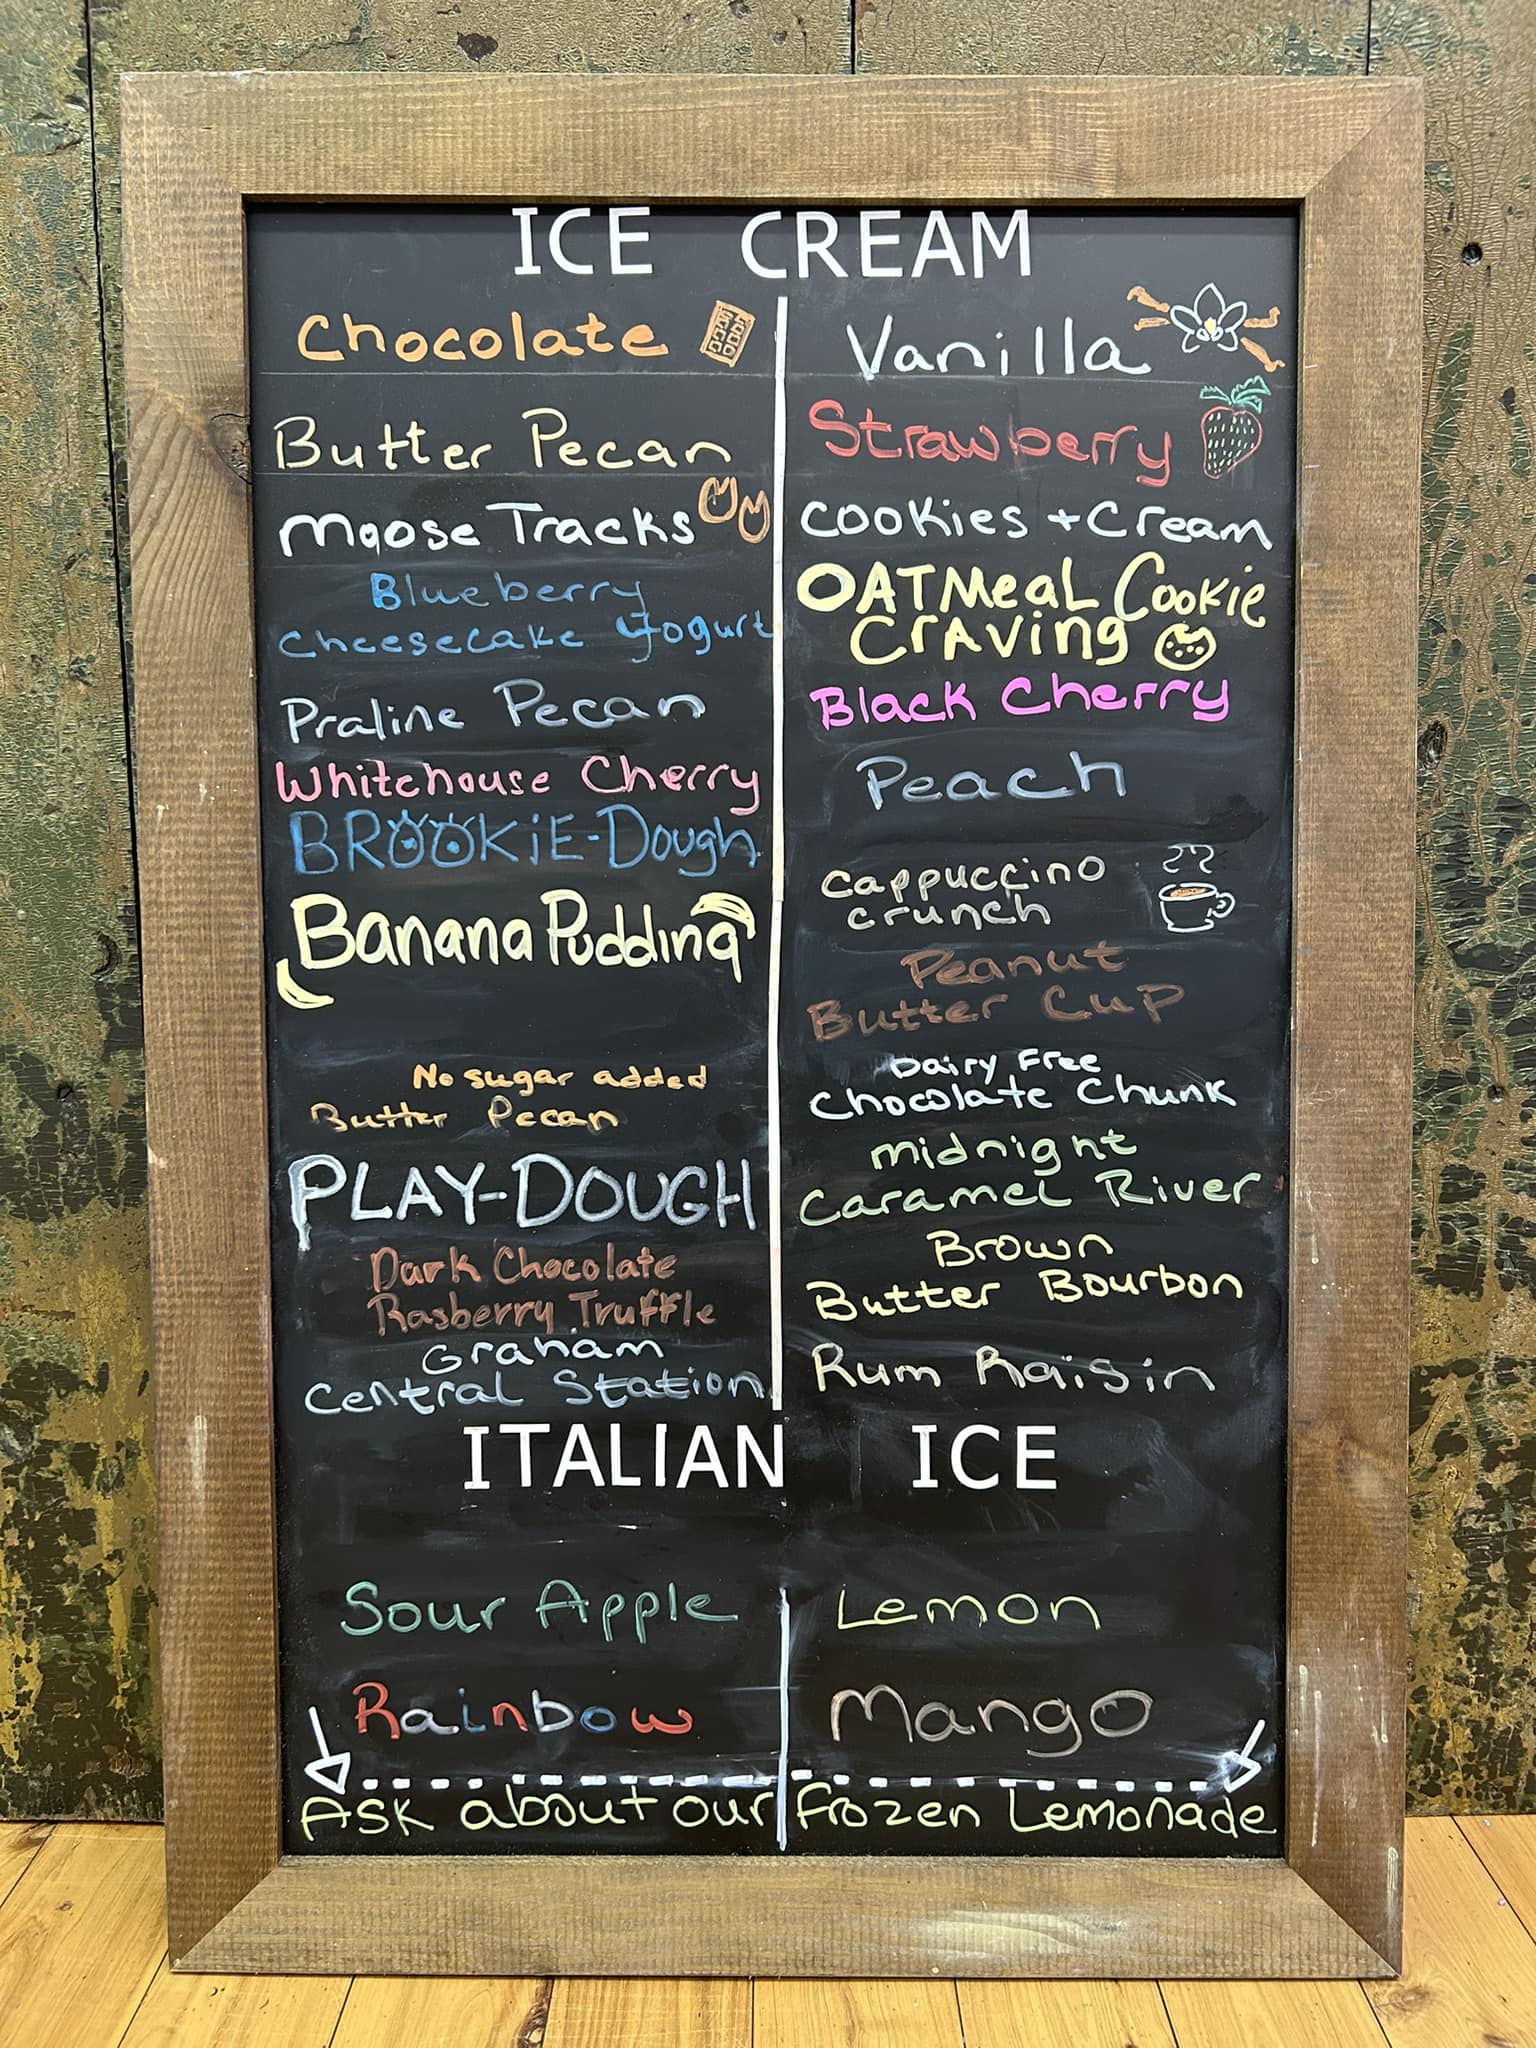 ICE CREAM
Chocolate
Butter Pecan
Moose Tracks
Blueberry
Cheesecake Yogurt
Praline Pecan
Whitehouse Cherry
BROOKiE-Dough
Banana Pudding
No sugar added
Butter Pecan
PLAY-DOUGH
Dark Chocolate
Rasberry Truffle
Graham
Central Station
Vanilla
Strawberry
Cookies + Cream
OATMeaL Cookie
CrAving
Black Cherry
Peach
Cappuccino
crunch
Peanut
Butter Cup
Dairy Free
Chocolate Chunk
Midnight
Caramel River
Brown
Butter Bourbon
Rum Raisin
ITALIAN ICE
Sour Apple
Rainbow
Lemon
Mango
Ask about our frozen Lemonade